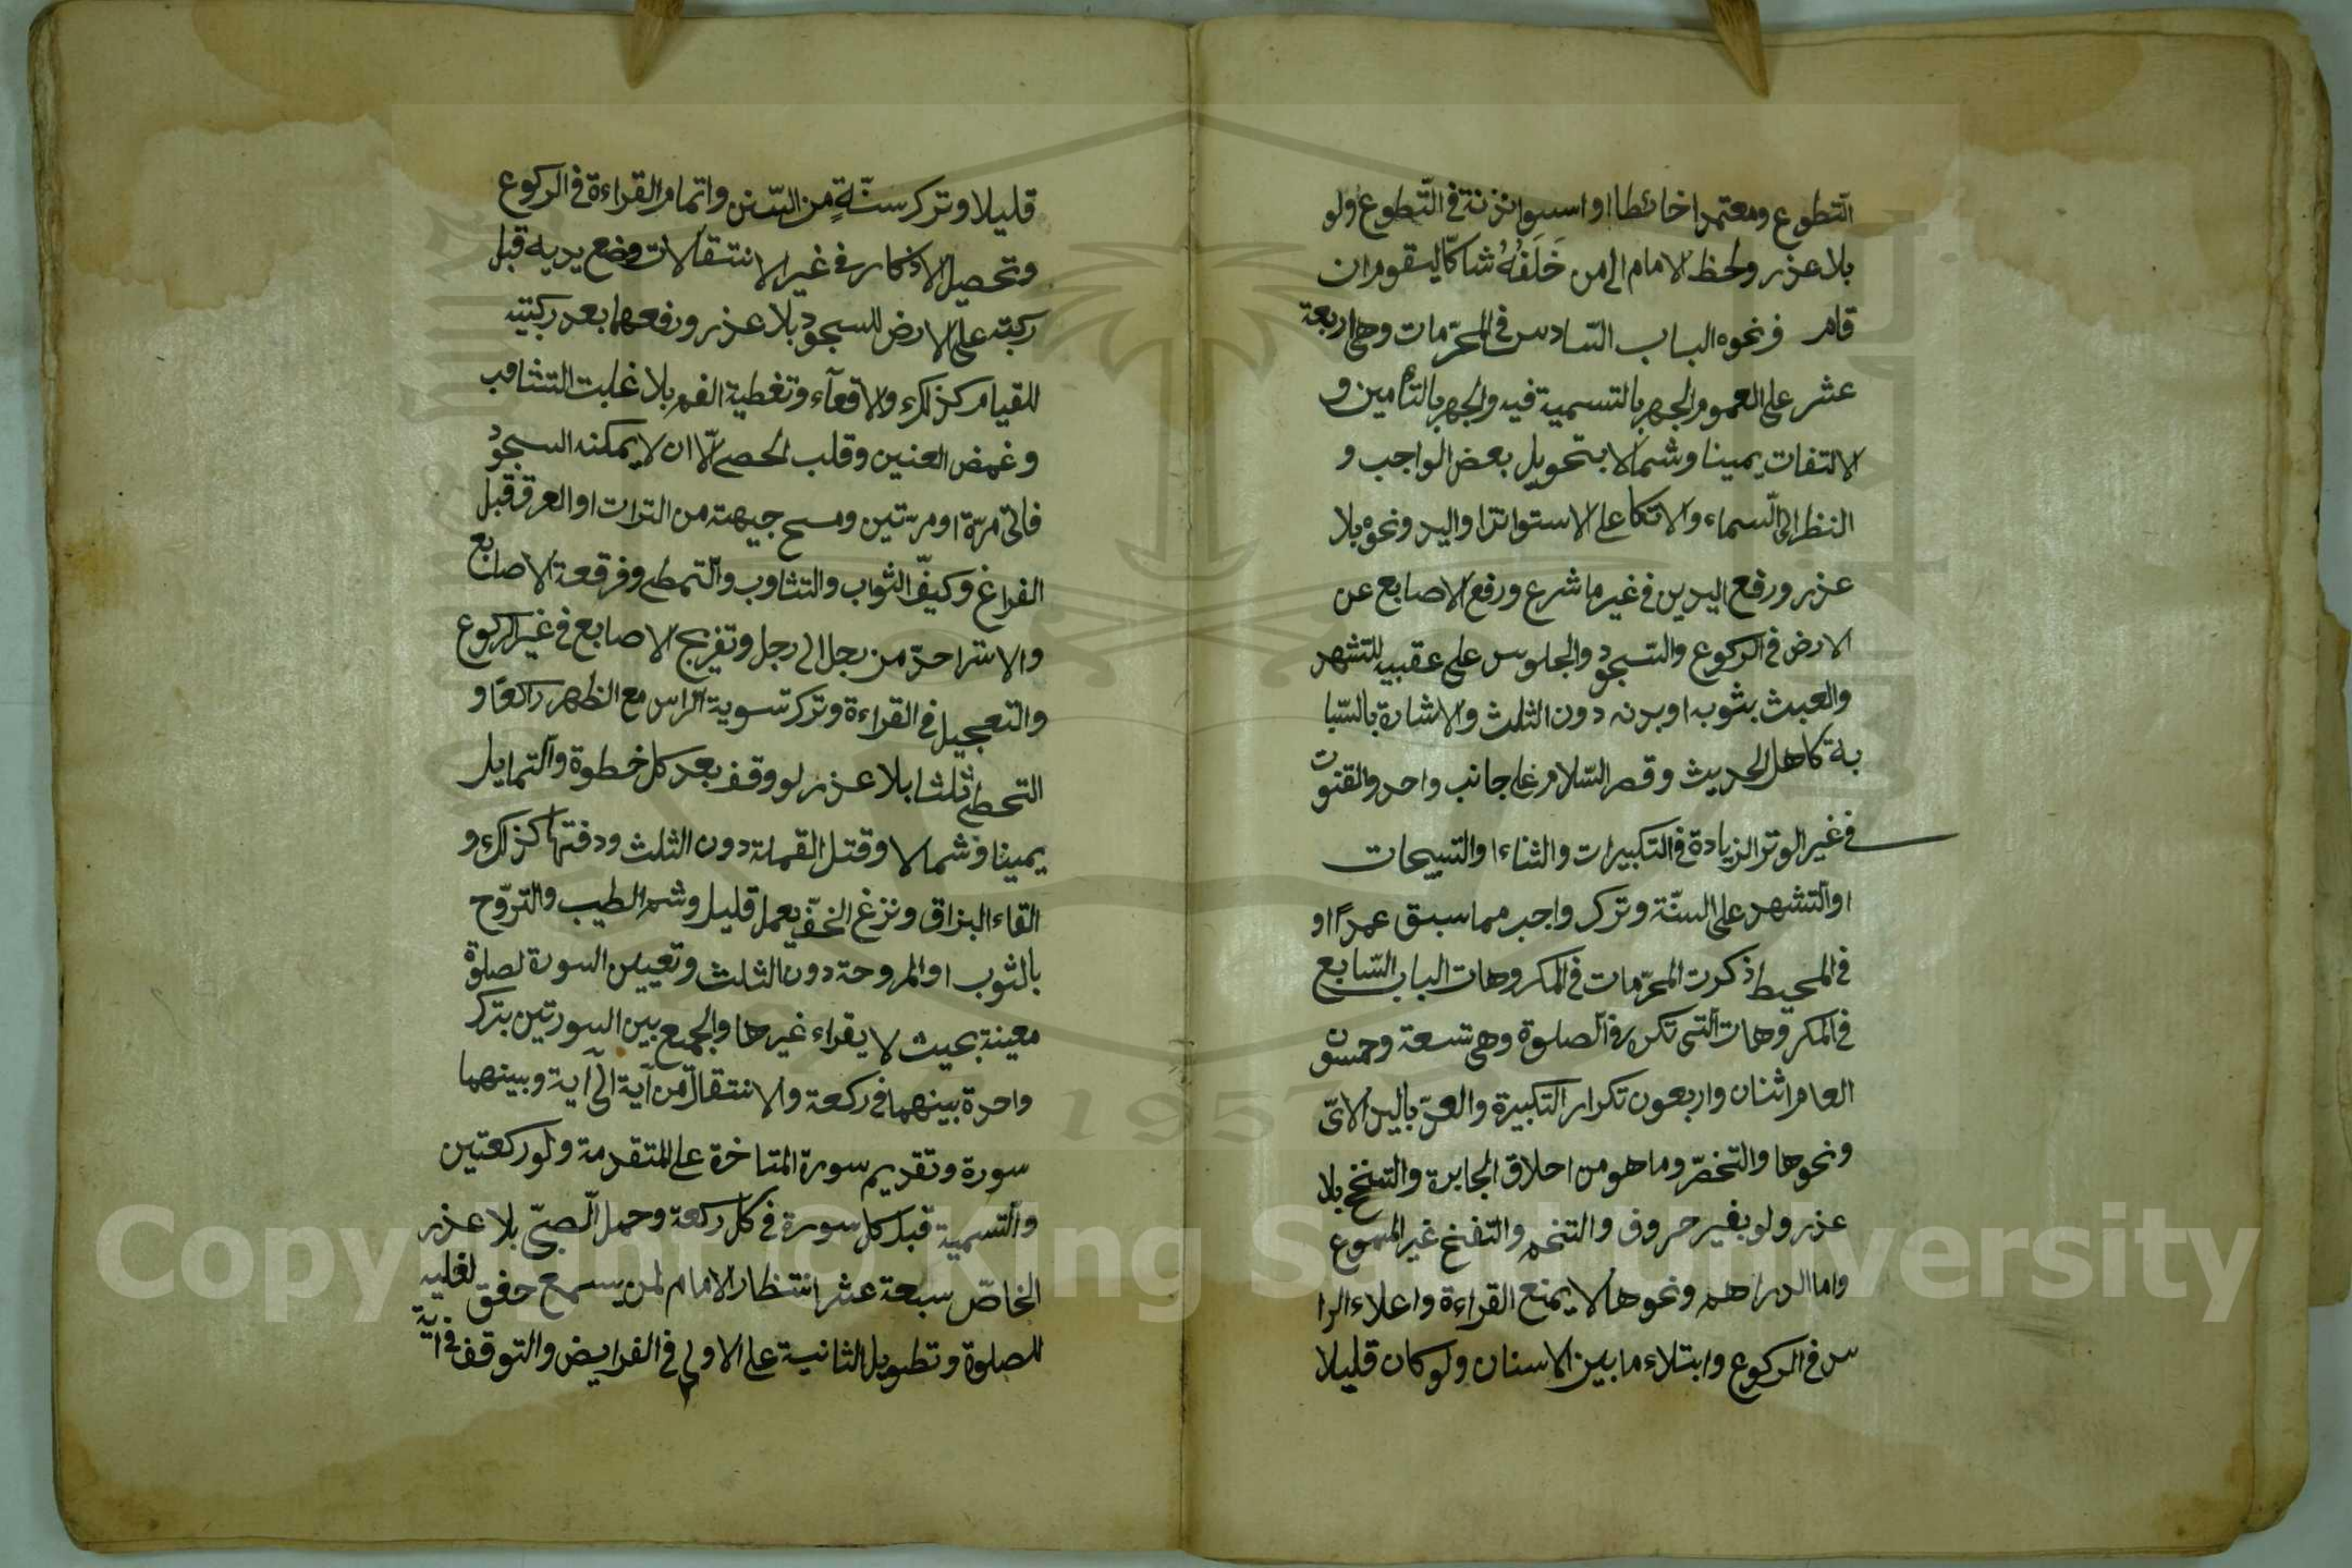 التطوع ومعتمدا حائطا او اسطوانة في التطوع ولو
بلا عذر ولحظ الامام الى من خَلَفُهُ شاكّا ليقوم ان
قام ونحوه الباب السّادس في المحرّمات وهى اربعة
عشر على العموم والجهر بالتسمية فيه والجهر بالتأمين و
الالتفات يمينا وشمالا بتحويل بعض الواجب و
النظر الى السّماء والاتكا على الاستوانة او اليد ونحوه بلا
عذر ورفع اليدين في غير ما شرع ورفع الاصابع عن
الارض في الركوع والسّجود والجلوس على عقبيه للتشهد
والعبث بثوبه او بدنه دون الثلث والاشارة بالسّبا
بة كاهل الحديث وقصر السّلام على جانب واحد والقنوت
في غير الوتر الزيادة في التكبيرات والثناء او التسبيحات
او التشهد على السنّة وترك واجب مما سبق عمدًا و
في المحيط ذكرت المحرّمات في المكروهات الباب السّابع
في المكروهات التى تكره في الصلوة وهى تسعة وخمسون
العام اثنان واربعون تكرار التكبيرة والعدّ باليد الاىّ
ونحوها والتخصّر وما هو من اخلاق الجابرة والتنحنح بلا
عذر ولو بغير حروف والتنخم والتنفخ غير المسموع
واما الدراهم ونحوها لا يمنع القراءة واعلاء الرا
س في الركوع وابتلاء ما بين الاسنان ولو كان قليلا
قليلا وترك سنّةٍ من السّنن واتمام القراءة في الركوع
وتحصيل الاذكار في غير الانتقالات وضع يديه قبل
ركبته على الارض للسجود بلا عذر ورفعهما بعد ركبتيه
للقيام كذلك والاقعآء وتغطية الفم بلا غلبت التثاءب
وغمض العنين وقلب الحصى الّا ان لا يمكنه السجود
فاتى مرّة او مرّتين ومسح جبهته من التراب او العرق قبل
الفراغ وكيفّ الثواب والتثاوب والتمطى وفرقعة الاصابع
والاستراحة من رجل الى رجل وتفريج الاصابع في غير الركوع
والتعجيل في القراءة وترك تسوية الراس مع الظهر راكعًا و
التخطى ثلثا بلا عذر لو وقف بعد كل خطوة والتمايل
يمينا وشمالا وقتل القملة دون الثلث ودفنها كذلك و
القاء البزاق ونزع الخفّ بعمل قليل وشم الطيب والتروّح
بالثوب او المروحة دون الثلث وتعيين السورة لصلوة
معينة بحيث لا يقراء غيرها والجمع بين السورتين بترك
واحدة بينهما في ركعة والانتقال من آية الى آية وبينهما
سورة وتقديم سورة المتاخرة على المتقدمة ولو ركعتين
والتسمية قبل كل سورة في كل ركعة وحمل الصبىّ بلا عذر
الخاصّ سبعة عشر انتظار الامام لمن يسمع حفق لغليه
للصلوة وتطويل الثانية على الاولى في الفرايض والتوقف في آية